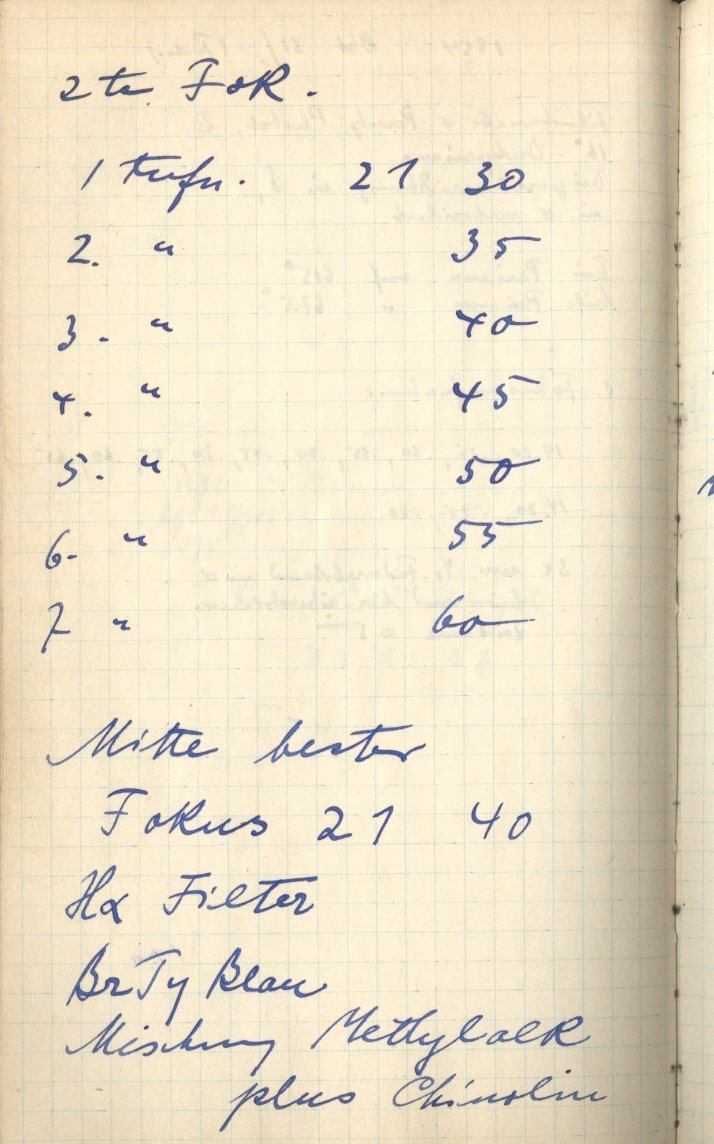 2te Fok.
1 Aufn. 21 30
2. " 35
3. " 40
4. " 45
5. " 50
6. " 55
7 " 60
Mitte bester
Fokus 21 40
Hα Filter
BrTy Blau
Mischung Methylalk
plus Chinolin